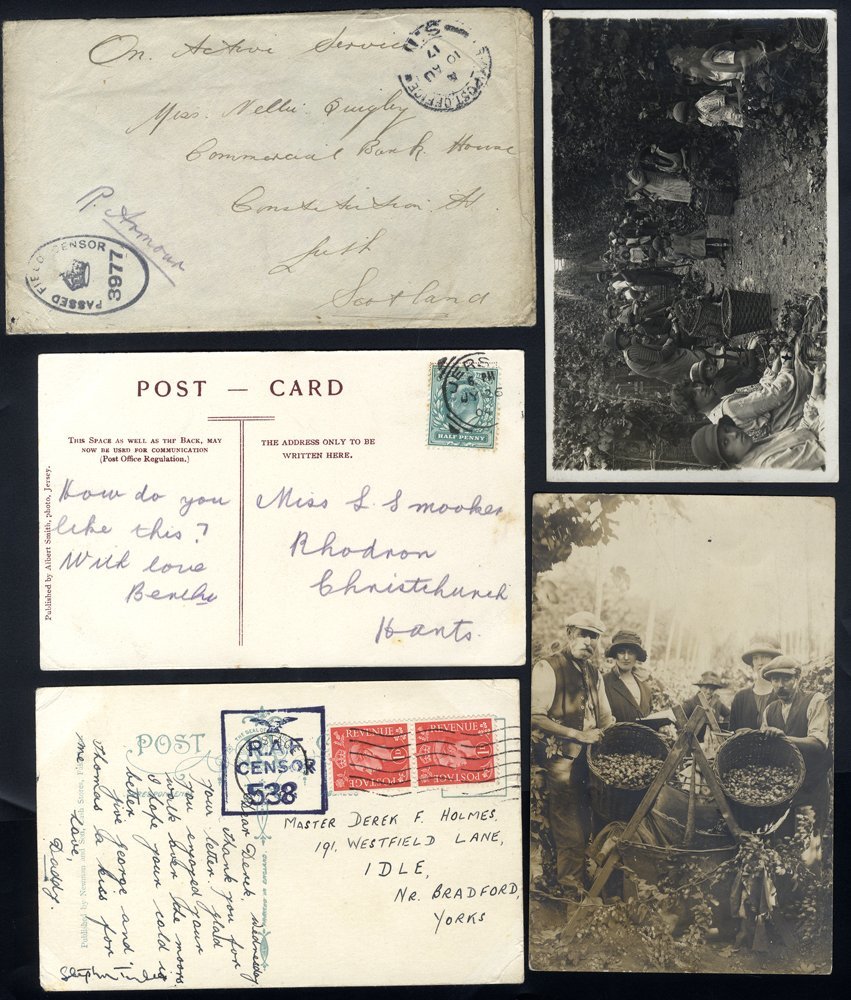 On Active Service
POST OFFICE
10 AU
17
Miss. Nellie Quigley
Commercial Bank House
Constitution St.
Leith
Scotland
P. Armour
PASSED FIELD CENSOR
3977
POST — CARD
THIS SPACE AS WELL AS THE BACK, MAY
NOW BE USED FOR COMMUNICATION
(Post Office Regulation.)
THE ADDRESS ONLY TO BE
WRITTEN HERE.
JERS
JY 26
HALF PENNY
Published by Albert Smith, photo, Jersey.
How do you
like this?
With love
Bertha
Miss L. Smooker
Rhodron
Christchurch
Hants.
POST
R.A.F.
CENSOR
538
REVENUE
1D
POSTAGE
REVENUE
1D
POSTAGE
Wednesday
Dear Derek,
Thank you for
your letter. Glad
you enjoyed your
walk over the moors.
I hope your cold is
better.
Give George and
Thomas a kiss for
me.
Love,
Daddy.
MASTER DEREK F. HOLMES,
191, WESTFIELD LANE,
IDLE,
NR. BRADFORD,
YORKS
Published by